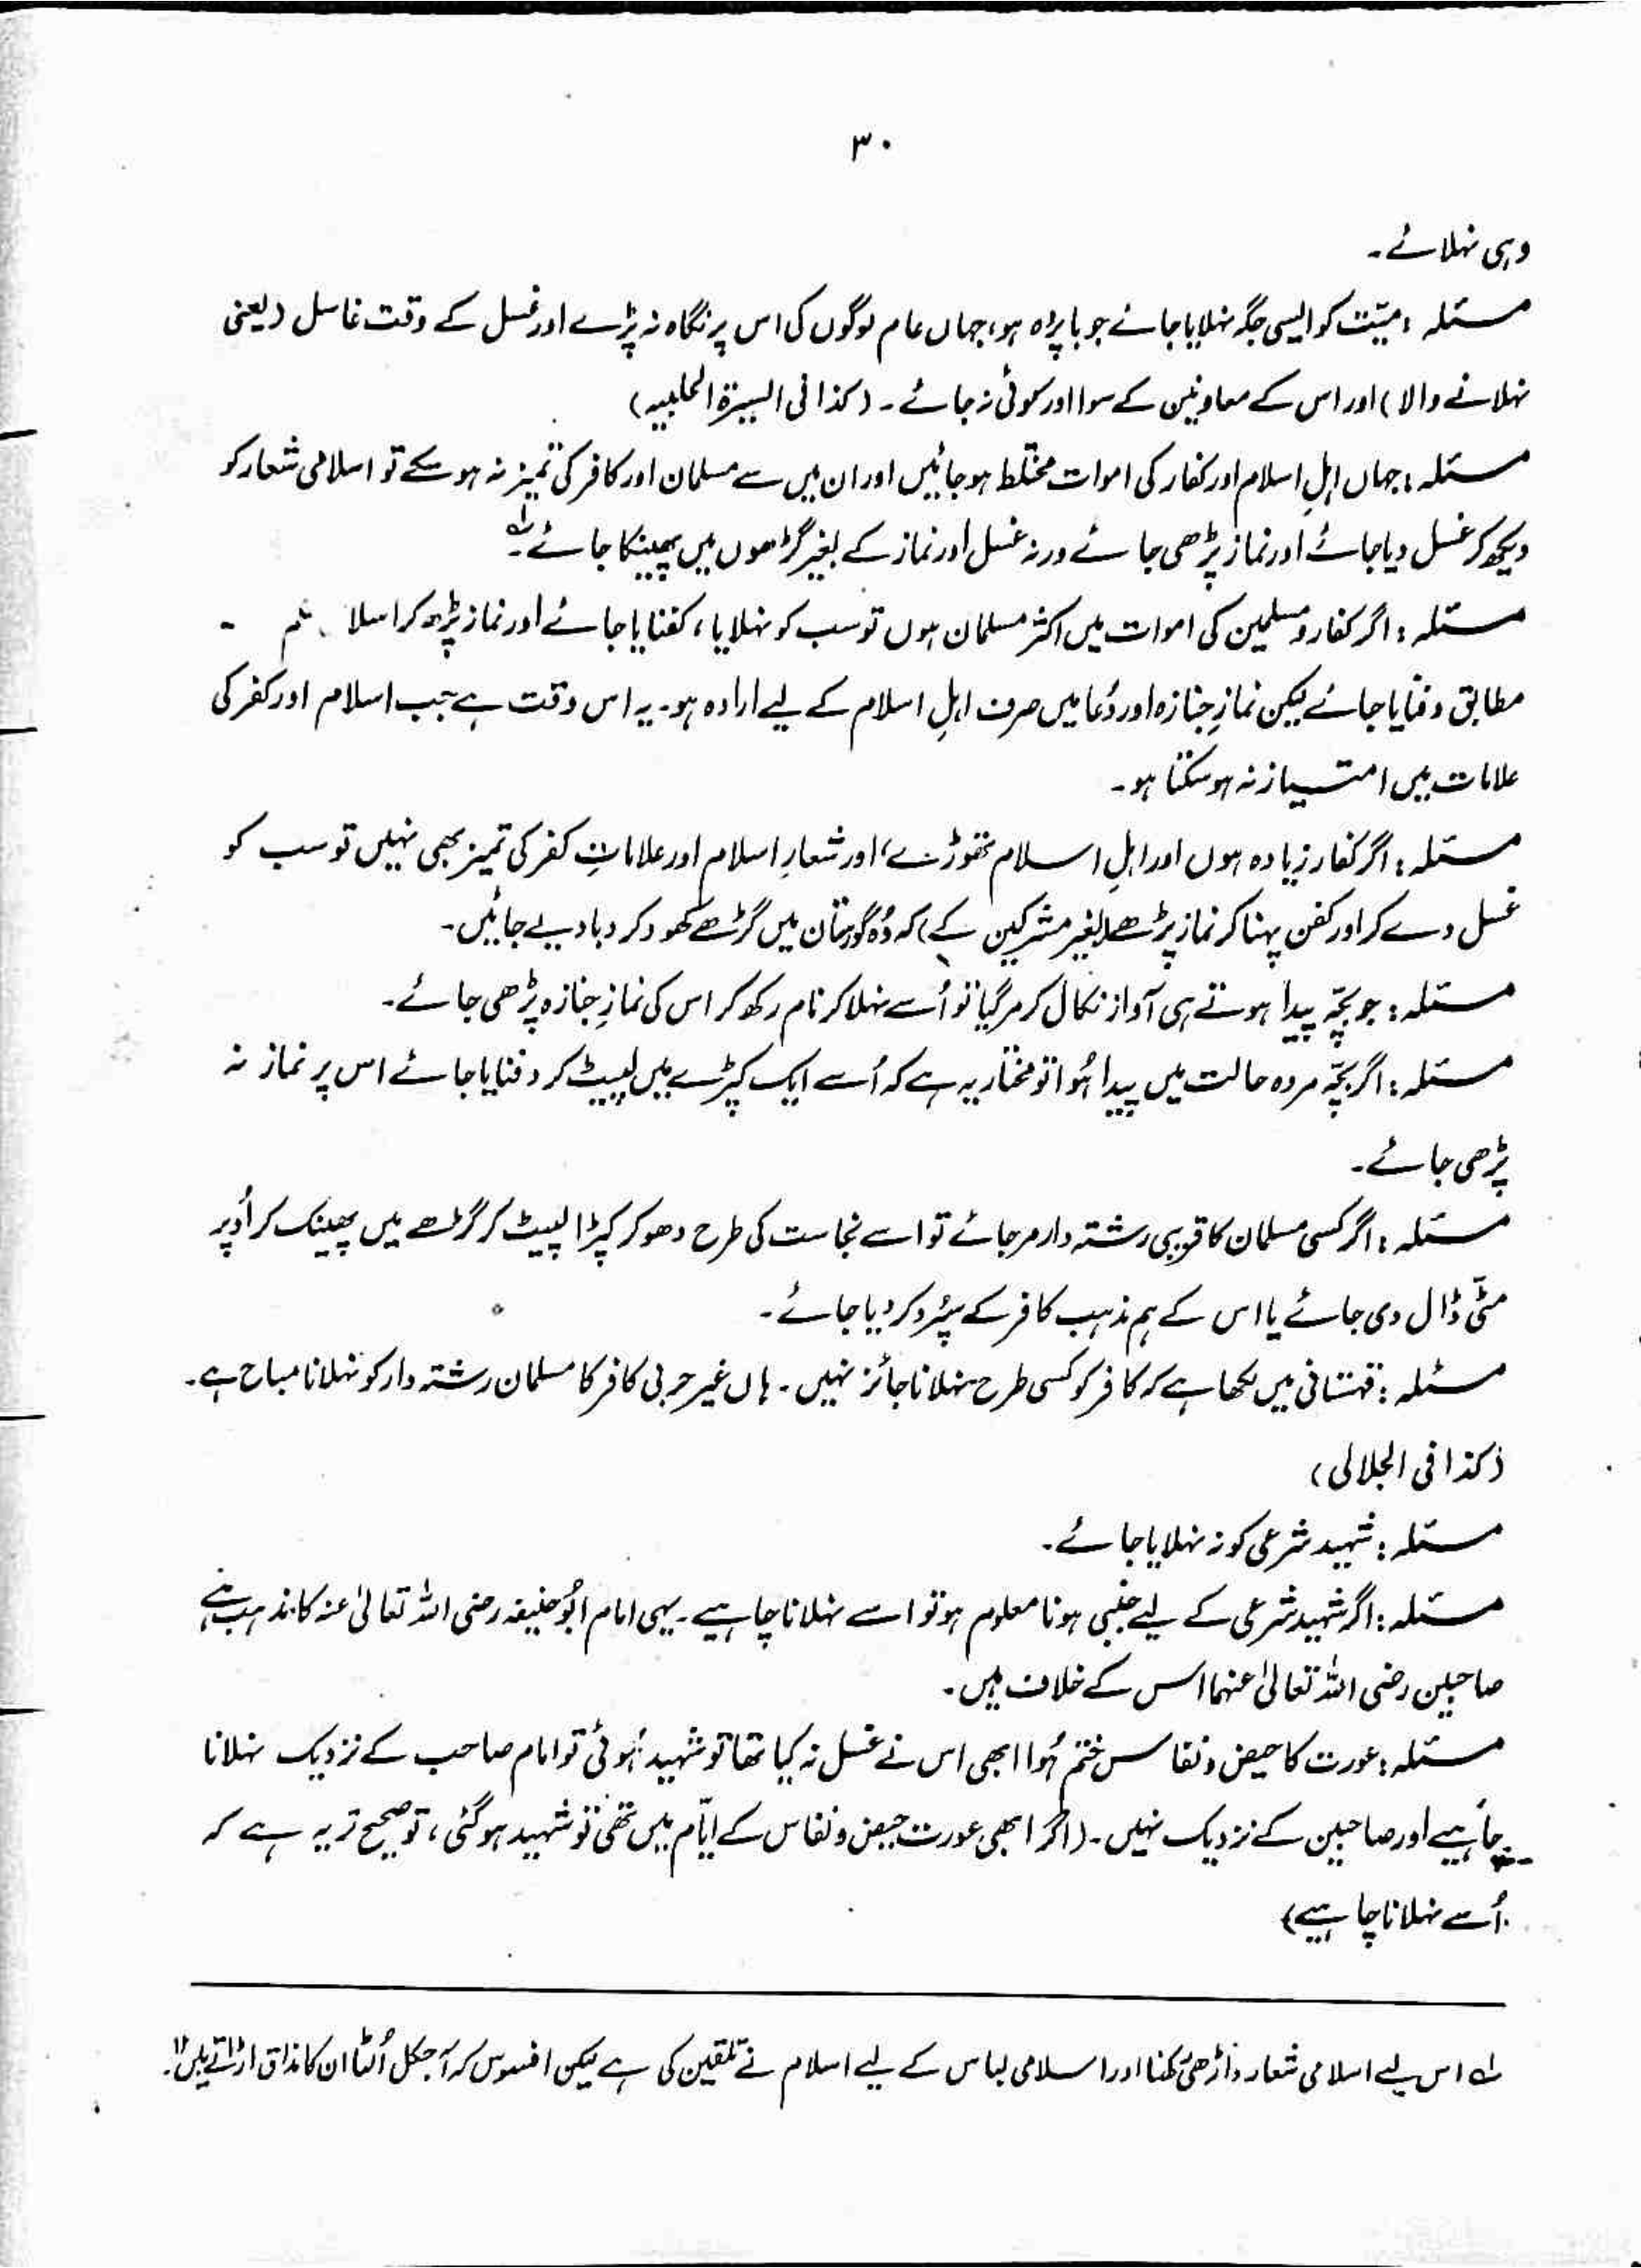 ۳۰
وہی نہلائے۔
مسئلہ : میّت کو ایسی جگہ نہلایا جائے جو با پردہ ہو، جہاں عام لوگوں کی اس پر نگاہ نہ پڑے اور غسل کے وقت غاسل (یعنی
نہلانے والا) اور اس کے معاونین کے سوا اور کوئی نہ جائے۔ (کذا فی السیرۃ الحلبیہ)
مسئلہ : جہاں اہلِ اسلام اور کفار کی اموات مختلط ہو جائیں اور ان میں سے مسلمان اور کافر کی تمیز نہ ہو سکے تو اسلامی شعار کو
دیکھ کر غسل دیا جائے اور نماز پڑھی جائے ورنہ غسل اور نماز کے بغیر گڑھوں میں پھینکا جائے۔ لہ
مسئلہ : اگر کفار و مسلمین کی اموات میں اکثر مسلمان ہوں تو سب کو نہلایا، کفنایا جائے اور نماز پڑھ کر
مطابق دفنایا جائے لیکن نمازِ جنازہ اور دُعا میں صرف اہلِ اسلام کے لیے ارادہ ہو۔ یہ اس وقت ہے جب اسلام اور کفر کی
علامات میں امتیاز نہ ہو سکتا ہو۔
مسئلہ : اگر کفار زیادہ ہوں اور اہلِ اسلام تھوڑے، اور شعارِ اسلام اور علاماتِ کفر کی تمیز بھی نہیں تو سب کو
غسل دے کر اور کفن پہنا کر نماز پڑھے بغیر مشرکین کے کہ وُہ گورستان میں گڑھے کھود کر دبا دیے جائیں۔
مسئلہ : جو بچّہ پیدا ہوتے ہی آواز نکال کر مر گیا تو اُسے نہلا کر نام رکھ کر اس کی نمازِ جنازہ پڑھی جائے۔
مسئلہ : اگر بچّہ مردہ حالت میں پیدا ہُوا تو مختار یہ ہے کہ اُسے ایک کپڑے میں لپیٹ کر دفنایا جائے اس پر نماز نہ
پڑھی جائے۔
مسئلہ : اگر کسی مسلمان کا قریبی رشتہ دار مر جائے تو اسے نجاست کی طرح دھو کر کپڑا لپیٹ کر گڑھے میں پھینک کر اُوپر
مٹّی ڈال دی جائے یا اس کے ہم مذہب کافر کے سپُرد کر دیا جائے۔
مسئلہ : قہستانی میں لکھا ہے کہ کافر کو کسی طرح نہلانا جائز نہیں۔ ہاں غیر حربی کافر کا مسلمان رشتہ دار کو نہلانا مباح ہے۔
(کذا فی الجلالی)
مسئلہ : شہید شرعی کو نہ نہلایا جائے۔
مسئلہ : اگر شہید شرعی کے لیے جنبی ہونا معلوم ہو تو اسے نہلانا چاہیے۔ یہی امام ابُو حنیفہ رضی اللہ تعالیٰ عنہ کا مذہب ہے
صاحبین رضی اللہ تعالیٰ عنہما اس کے خلاف ہیں۔
مسئلہ : عورت کا حیض و نفاس ختم ہُوا ابھی اس نے غسل نہ کیا تھا تو شہید ہُوئی تو امام صاحب کے نزدیک نہلانا
چاہیے اور صاحبین کے نزدیک نہیں۔ (اگر ابھی عورت حیض و نفاس کے ایّام میں تھی تو شہید ہو گئی، تو صحیح تر یہ ہے کہ
اُسے نہلانا چاہیے)
لہ اس لیے اسلامی شعار داڑھی رکھنا اور اسلامی لباس کے لیے اسلام نے تلقین کی ہے لیکن افسوس کہ آجکل اُلٹا ان کا مذاق اڑاتے ہیں ۱۲۔